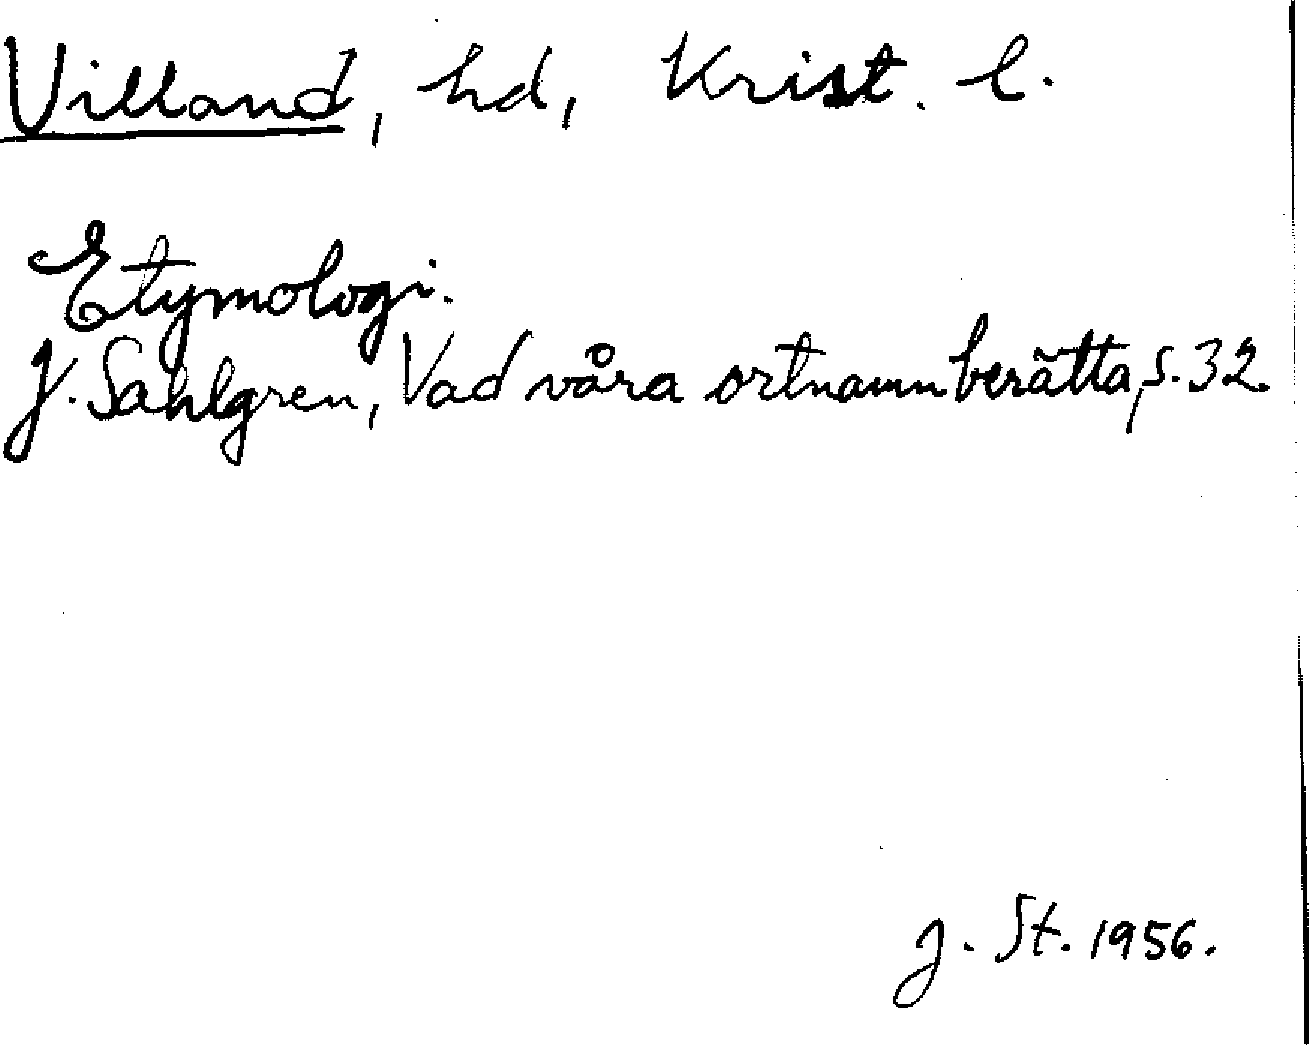 Villand, hd, Krist. l.
Etymologi.
J. Sahlgren, Vad våra ortnamn berätta, s. 32
J. St. 1956.